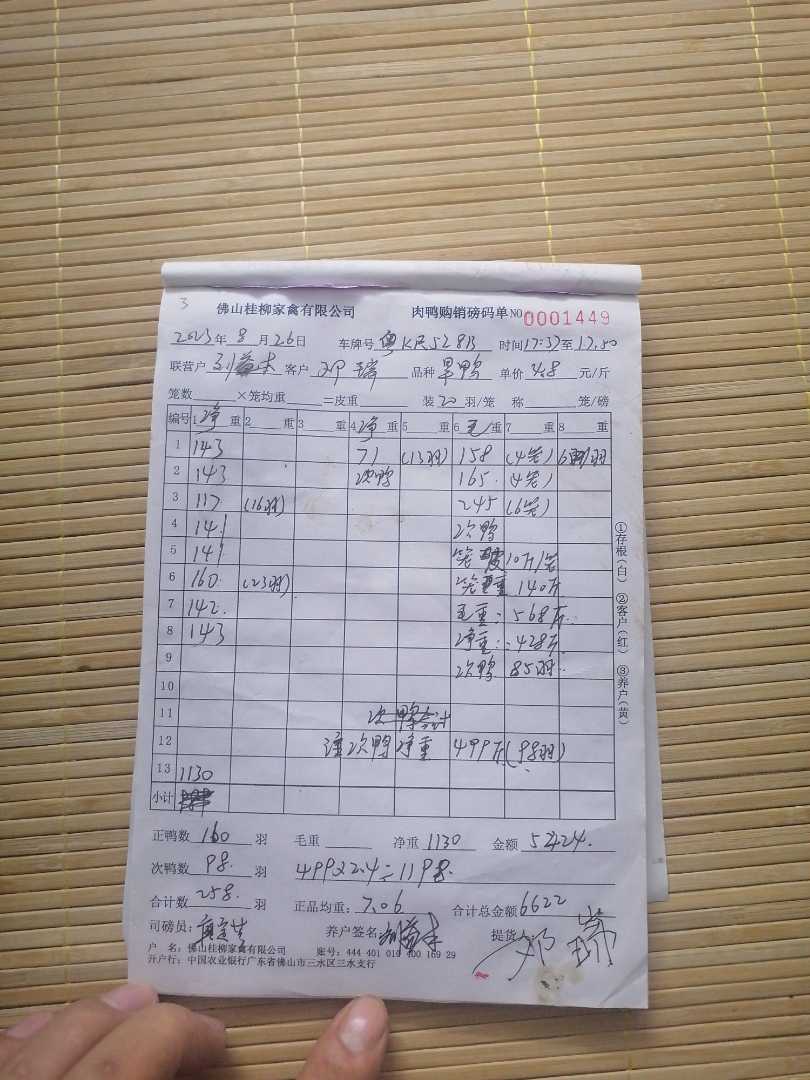 3
佛山桂柳家禽有限公司 肉鸭购销磅码单 NO 0001449
2023年8月26日 车牌号 粤K 528B 时间17:37至17:50
联营户 客户 邓瑞 品种 旱鸭 单价 4.8 元/斤
笼数 ×笼均重 =皮重 装 20 羽/笼 称 笼/磅
编号 1 净重 2 重 3 重 4 净重 5 重 6 毛重 7 重 8 重
1 143 71 (13羽) 158 (4笼)
2 143 次鸭 165. (4笼)
3 117 (16羽) 245 (6笼)
4 141 次鸭
5 141 笼 10斤/笼
6 160 (23羽) 笼重 140斤
7 142. 毛重: 568斤.
8 143 净重: 428斤.
9 次鸭 85羽.
10
11 次鸭合计
12 次鸭 净重 499斤(98羽)
13 1130
小计
①存根(白) ②客户(红) ③养户(黄)
正鸭数 160 羽 毛重 净重 1130 金额 5424.
次鸭数 98. 羽 499×2.4=1198.
合计数 258. 羽 正品均重: 7.06 合计总金额 6622
司磅员: 养户签名: 提货人: 邓瑞
户 名: 佛山桂柳家禽有限公司 账号: 444 401 010 400 169 29
开户行: 中国农业银行广东省佛山市三水区三水支行